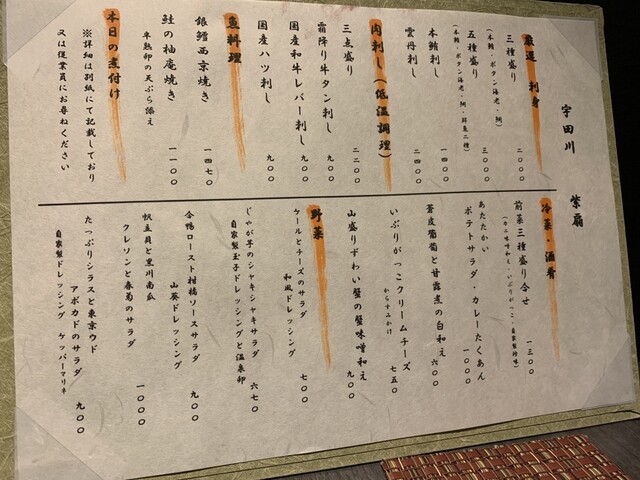 宇田川 紫扇
厳選 刺身
三種盛り 二〇〇〇
(本鮪・ボタン海老・鯛)
五種盛り 三〇〇〇
(本鮪・ボタン海老・鯛・鮮魚二種)
本鮪刺し 二四〇〇
雲丹刺し 二四〇〇
肉刺し(低温調理)
三点盛り 二二〇〇
霜降り牛タン刺し 九〇〇
国産和牛レバー刺し 九〇〇
国産ハツ刺し 九〇〇
魚料理
銀鱈西京焼き 一四七〇
鮭の柚庵焼き 一一〇〇
半熟卵の天ぷら添え
本日の煮付け
※詳細は別紙にて記載しており
又は従業員にお尋ねください
冷菜・酒肴
前菜三種盛り合せ 一三〇〇
(カニ味噌和え・いぶりがっこ・自家製珍味)
あたたかい
ポテトサラダ・カレーたくあん 一〇〇〇
蒼皮葡萄と甘露煮の白和え 六〇〇
いぶりがっこクリームチーズ 七五〇
からすみかけ
山盛りずわい蟹の蟹味噌和え 九〇〇
野菜
ケールとチーズのサラダ 七〇〇
和風ドレッシング
じゃが芋のシャキシャキサラダ 六七〇
自家製玉子ドレッシングと温泉卵
合鴨ロースト柑橘ソースサラダ 九〇〇
山葵ドレッシング
帆立貝と黒川南瓜
クレソンと春菊のサラダ 一〇〇〇
たっぷりシラスと東京ウド
アボカドのサラダ 九〇〇
自家製ドレッシング ケッパーマリネ